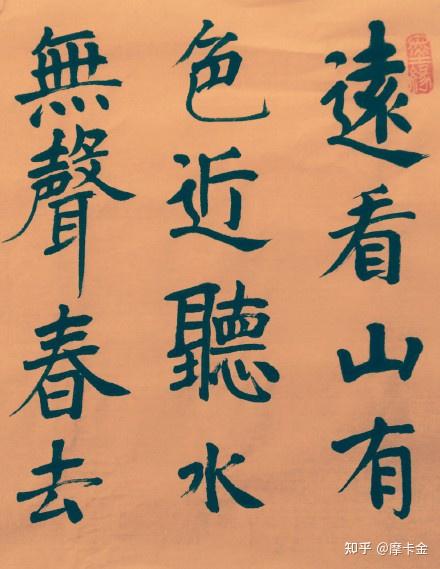 遠看山有
色近聽水
無聲春去
知乎 @摩卡金